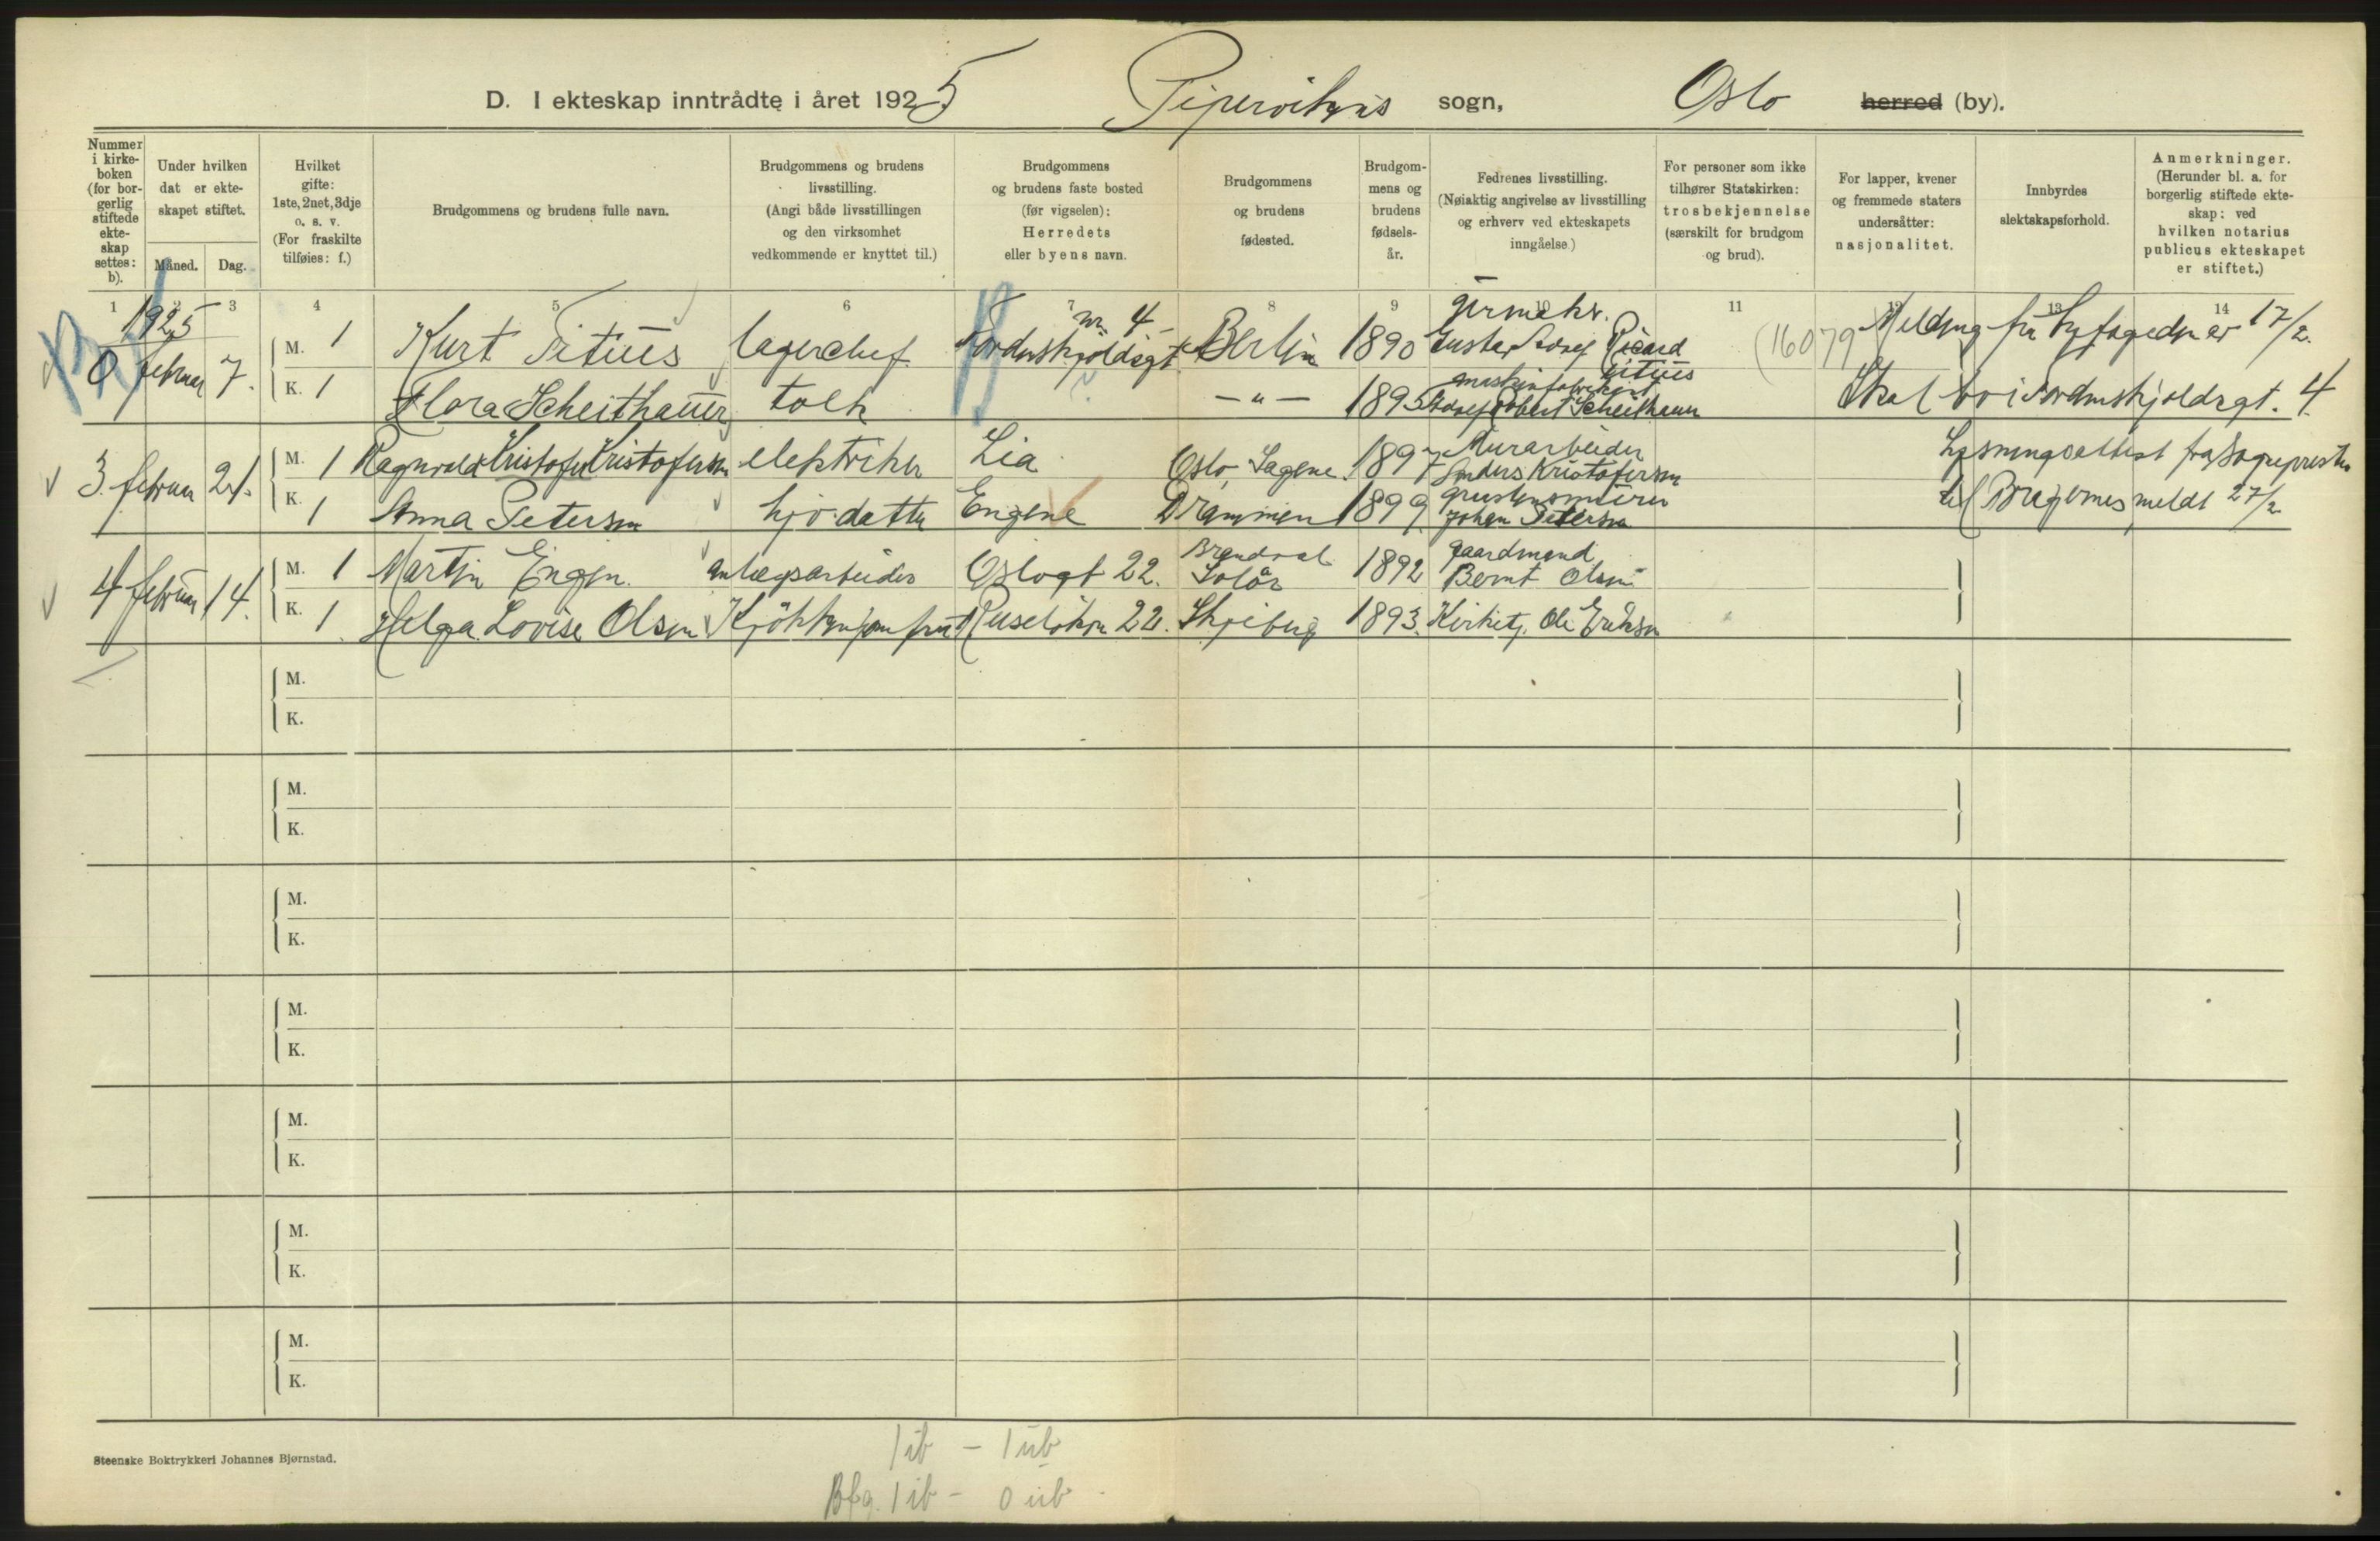 D. I ekteskap inntrådte i året 1925 Pipervikens sogn, Oslo herred (by).
Nummer i kirkeboken (for borgerlig stiftede ekteskap settes: b).
Under hvilken dat er ekteskapet stiftet.
Måned. Dag.
Hvilket gifte: 1ste, 2net, 3dje o. s. v. (For fraskilte tilføies: f.)
Brudgommens og brudens fulle navn.
Brudgommens og brudens livsstilling. (Angi både livsstillingen og den virksomhet vedkommende er knyttet til.)
Brudgommens og brudens faste bosted (før vigselen): Herredets eller byens navn.
Brudgommens og brudens fødested.
Brudgommens og brudens fødselsår.
Fedrenes livsstilling. (Nøiaktig angivelse av livsstilling og erhverv ved ekteskapets inngåelse.)
For personer som ikke tilhører Statskirken: trosbekjennelse (særskilt for brudgom og brud).
For lapper, kvener og fremmede staters undersåtter: nasjonalitet.
Innbyrdes slektskapsforhold.
Anmerkninger. (Herunder bl. a. for borgerlig stiftede ekteskap: ved hvilken notarius publicus ekteskapet er stiftet.)
1 2 3 4 5 6 7 8 9 10 11 12 13 14
1925
0 februar 7. M. 1 Kurt Titius lagerchef Tordenskjoldsgt nr. 4 Berlin 1890 Gustav Adolf Ricard Titius (16079 Melding fra byfogden av 17/2.
K. 1 Flora Scheithauer tolk — " — 1895 maskinfabrikant Adolf Robert Scheithauer Skal bo i Tordenskjoldsgt. 4.
3 februar 21. M. 1 Ragnvald Kristofer Kristofersen elektriker Lia Oslo, Sagene 1897 Murarbeider Anders Kristofersen Lysningsattest fra Sognepresten
K. 1 Anna Petersen hj. datter Engene Drammen 1899 Johan Petersen til Bragernes, meldt 27/2
4 februar 14. M. 1 Martin Engen anlegsarbeider Oslogt 22. Brandval Solør 1892 gaardmand Bernt Olsen
K. 1 Helga Lovise Olsen Kjøkkenjomfru Ruseløkvn 22. Skjeberg 1893. Kirketj. Ole Eriksen
M.
K.
M.
K.
M.
K.
M.
K.
M.
K.
M.
K.
M.
K.
Steenske Boktrykkeri Johannes Bjørnstad.
1 ib - 1 ub
Bfg. 1 ib - 0 ub